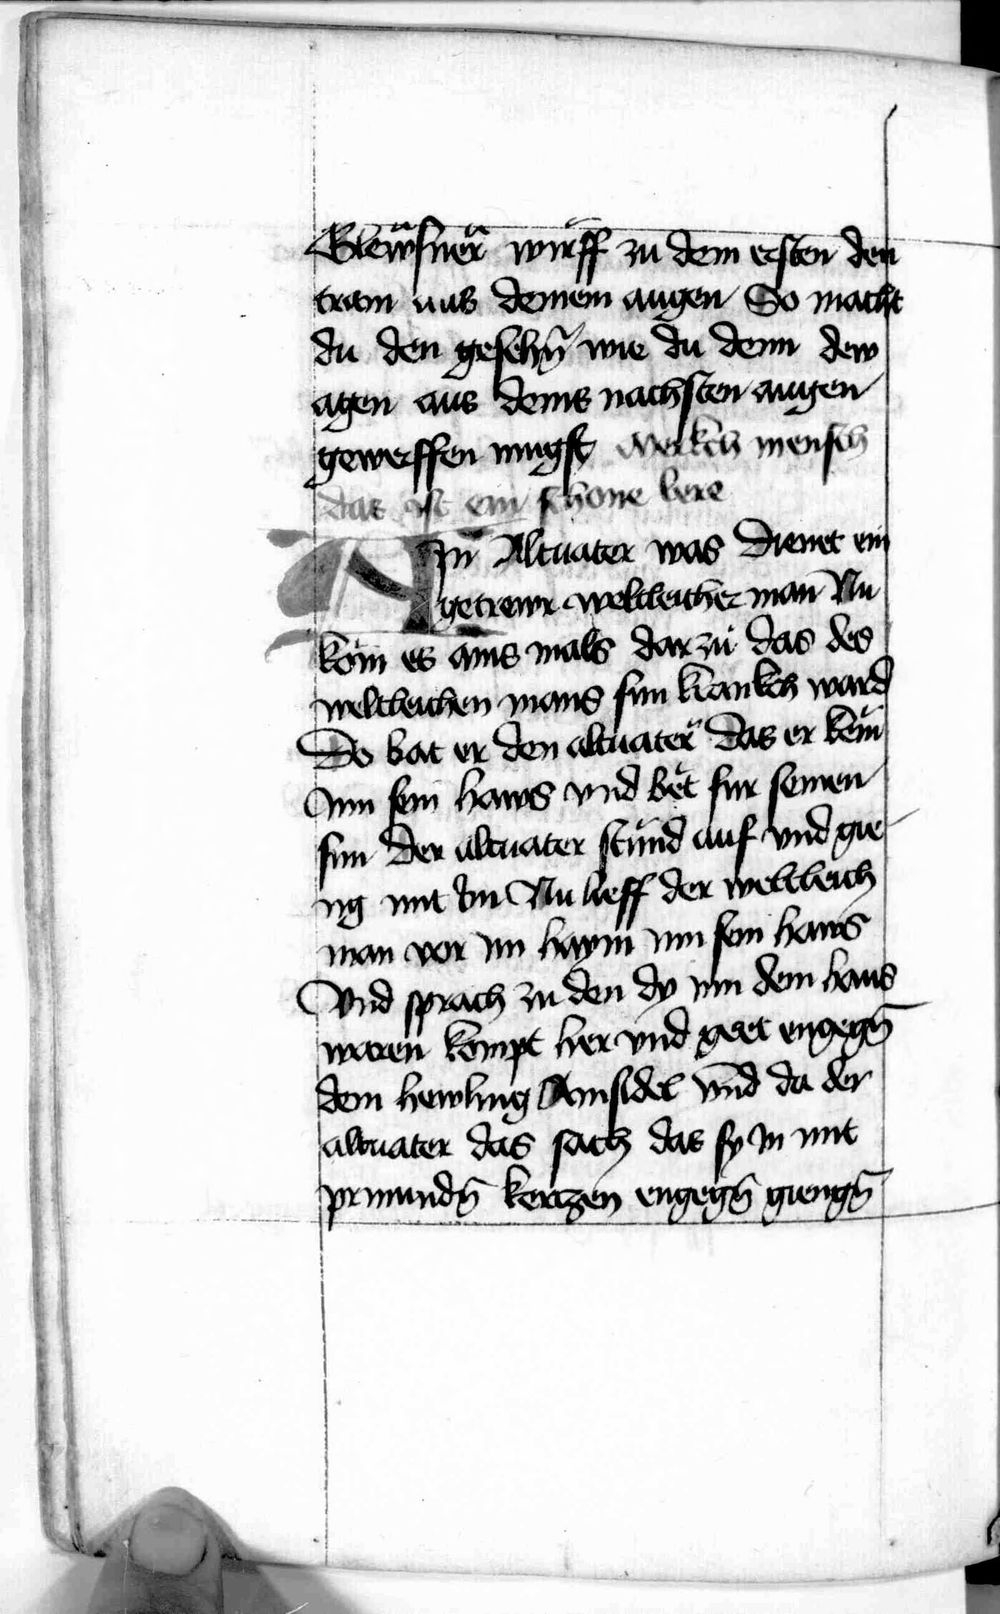 Gleẅsner̈ wür̈ff zu dem ersten den
tram aus deinem augen So macht
du den gesehn̄ wie du denn dew
agen aus deins nachsten augen
gewerffen mugst Merkch mensch
das ist ein schone lere
Ain Altuater was Dienet ein
getrewr weltleicher man Nu
köm es ains mals dar zu das des
weltleichen mans sun krankch ward
Do bat er den altuater Das er kem̈
Inn sein haws vnd bët fur seinen
sun Der altuater stu̇nd auf vnd gie
ng mit Im Nu lieff der weltleich
man vor im haym inn sein haws
Vnd sprach zu den dy inn dem haus
waren kompt her vnd geet engegn̄
dem hewling Ainsidel vnd da der
altuater das sach das sy in mit
prinundn̄ kertzen engegn̄ giengn̄